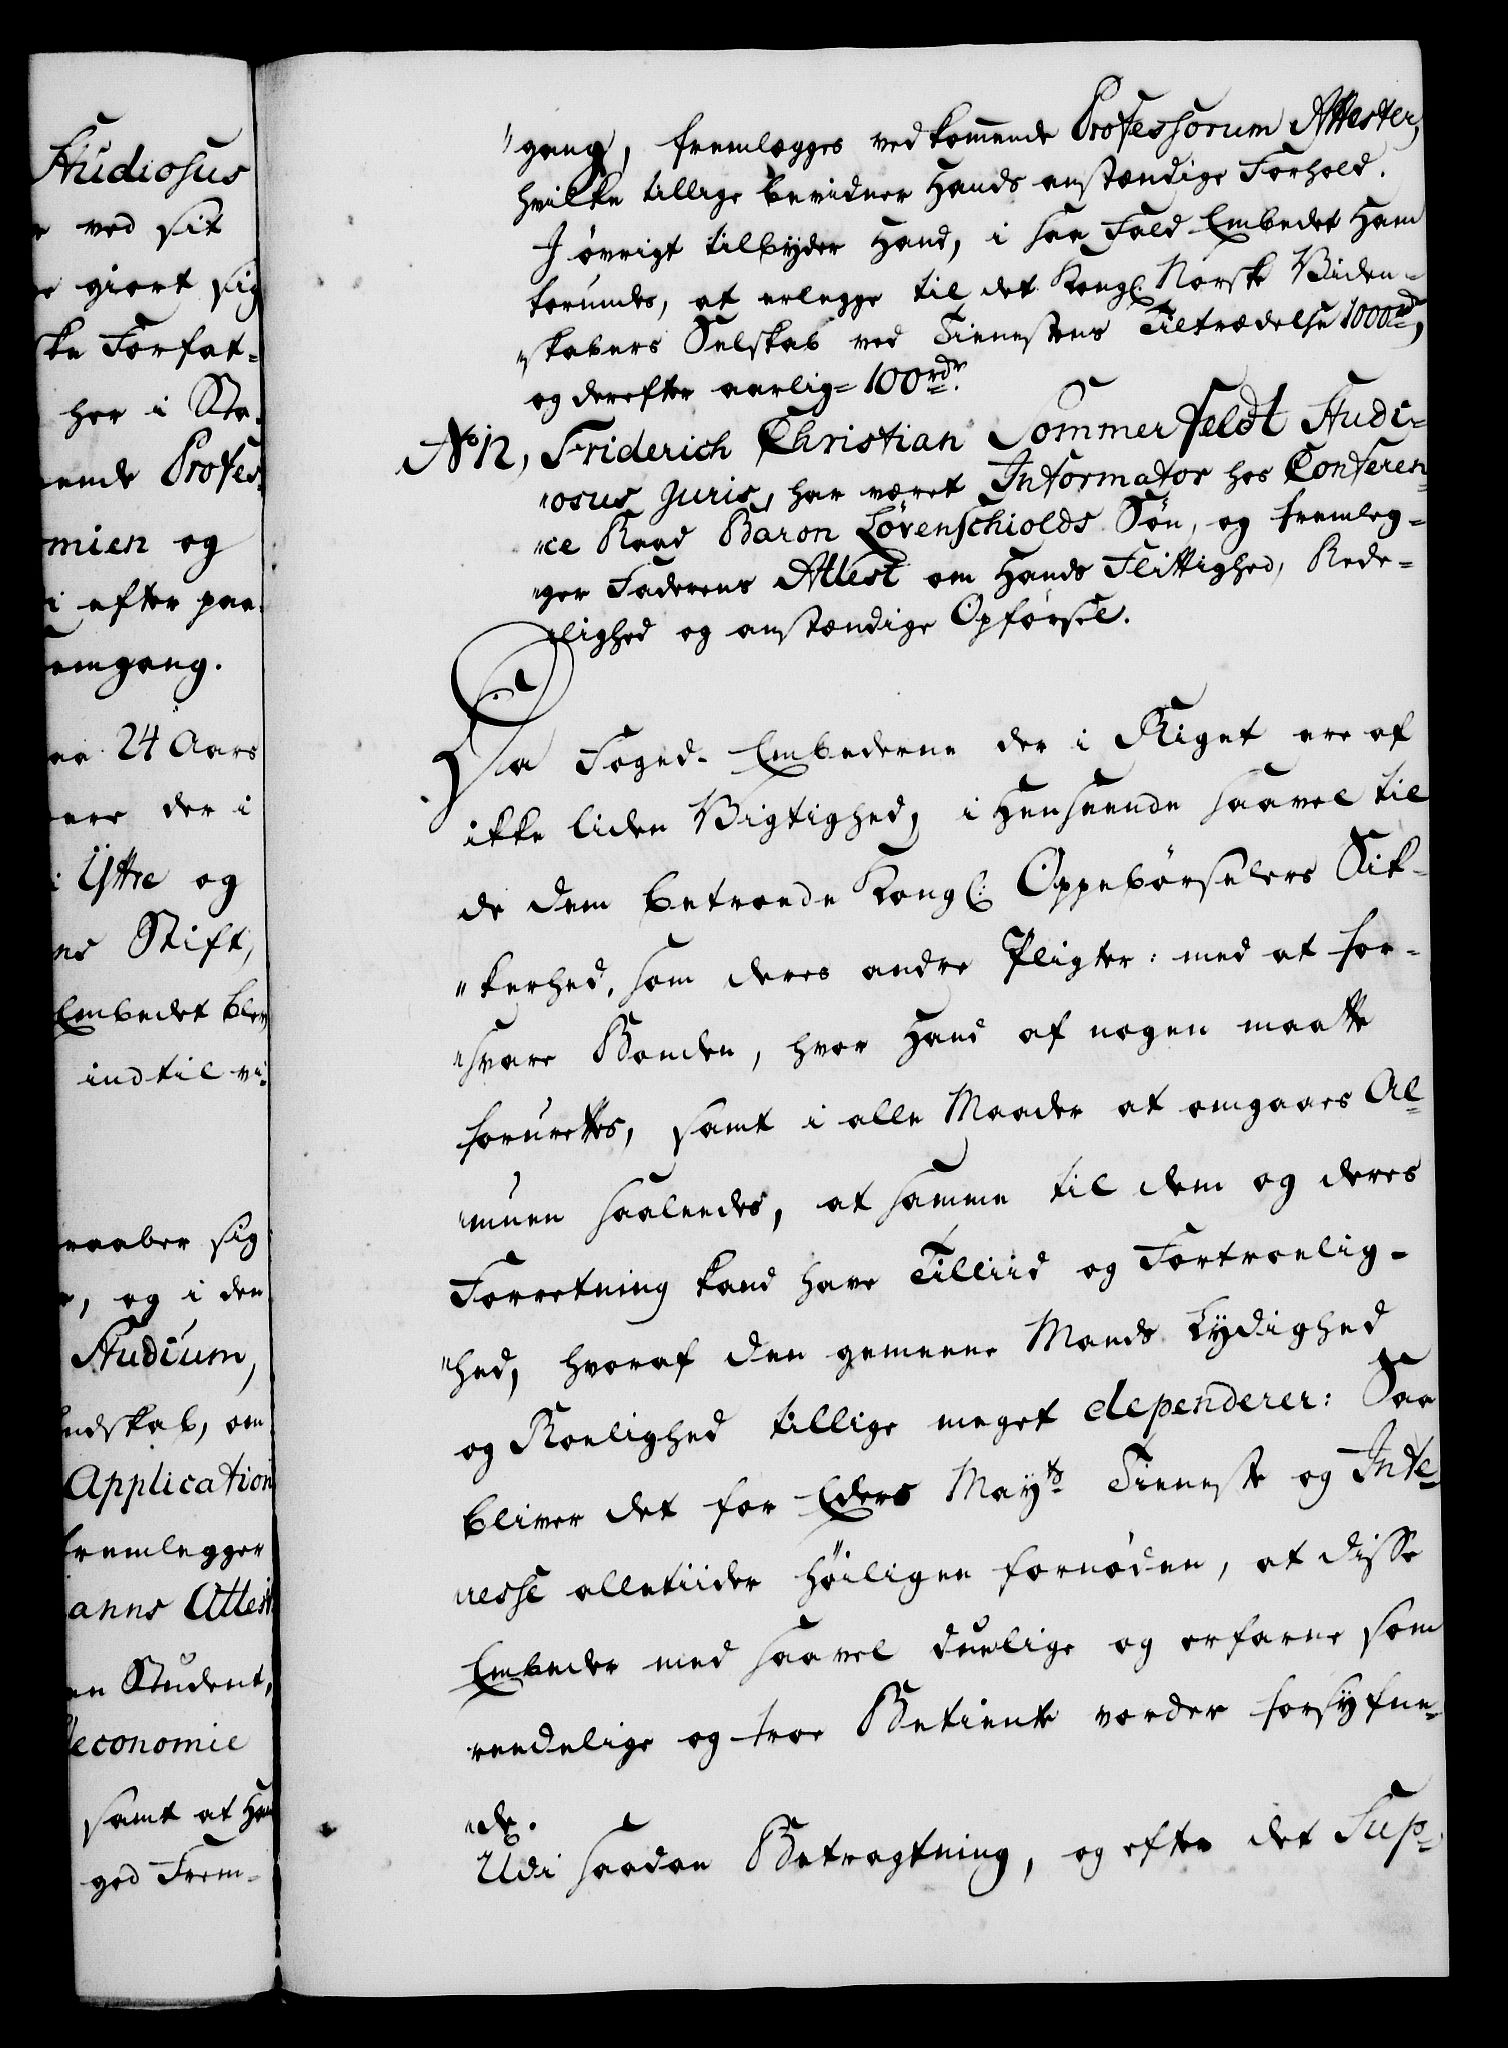 Studiosus
ved sit
giort sig
ske Forfat-
her i Sta-
ende Profes-
mien og
i efter paa-
emgang.
24 Aars
der i
i Ÿttre og
Stift,
Embedet blev
indtil vi-
raaber sig
, og i den
Studium,
ndskab, om
Application
fremlegger
anns Attest
en Student,
oeconomie
samt at Han
god Frem-
"gang, fremlægges vedkommende Professorum Attester,
hvilke tillige bevidner Hands anstændige Forhold.
I øvrigt tilbyder Hand, i saa Fald Embedet Ham
forundes, at erlegge til det Kongl: Norske Viden-
"skabers Selskab ved Tienestens Tiltrædelse 1000rd,
og derefter aarlig= 100rdr.
No 12, Friderich Christian Sommerfeldt Studi-
"osus juris, har været Informator hos Conferen-
"ce Raad Baron Løvenschiolds Søn, og fremleg-
"ger Faderens Attest om Hands Flittighed, Rede-
"lighed og anstændige Opførsel.
Da Foged-Embederne der i Riget ere af
ikke liden Vigtighed, i Henseende saavel til
de dem betroede Kongl: Oppebørselers Sik-
"kerhed, som deres andre Pligter: med at for-
"svare Bonden, hvor Hand af nogen maatte
forurettes, samt i alle Maader at omgaaes Al-
"muen saaledes, at samme til dem og deres
Forretning kand have Tilliid og Fortroelig-
"hed, hvoraf den gemeene Mands Lydighed
og Roelighed tillige meget dependerer: Saa
bliver det for Eders Mayts Tieneste og Inte-
"resse alletiider høiligen fornøden, at disse
Embeder med saavel duelige og erfarne som
reedelige og troe Betiente vorder forsyfne-
"de.
Udi saadan Betragtning, og efter det Sup-